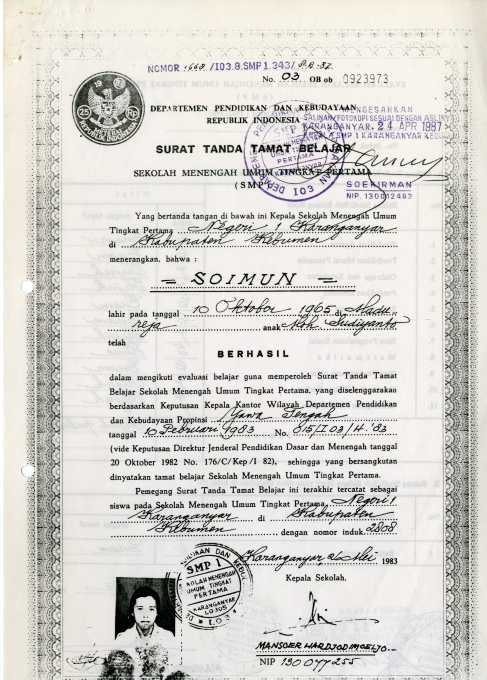 NOMOR
/I03.8.SMP1.343/
No. 03 OB ob 0923973
25 RUPIAH
REPUBLIK INDONESIA
DEPARTEMEN PENDIDIKAN DAN KEBUDAYAAN
REPUBLIK INDONESIA
MENGESAHKAN
SALINAN/FOTOKOPI SESUAI DENGAN ASLINYA
KARANGANYAR, 24 APR 1987
KEPALA SMP 1 KARANGANYAR KEBUMEN
SURAT TANDA TAMAT BELAJAR
SEKOLAH MENENGAH UMUM TINGKAT PERTAMA
(SMP)
SOEKIRMAN
NIP. 130012483
Yang bertanda tangan di bawah ini Kepala Sekolah Menengah Umum
Tingkat Pertama Negori 1 Karanganyar
di Kabupaten Kebumen
menerangkan, bahwa :
= SOIMUN =
lahir pada tanggal 10 Oktober 1965 di Madu
rejo anak Moh Sudiyanto
telah
BERHASIL
dalam mengikuti evaluasi belajar guna memperoleh Surat Tanda Tamat
Belajar Sekolah Menengah Umum Tingkat Pertama, yang diselenggarakan
berdasarkan Keputusan Kepala Kantor Wilayah Departemen Pendidikan
dan Kebudayaan Propinsi Jawa Tengah
tanggal 10 Pebruari 1983 No.
(vide Keputusan Direktur Jenderal Pendidikan Dasar dan Menengah tanggal
20 Oktober 1982 No. 176/C/Kep/I 82), sehingga yang bersangkutan
dinyatakan tamat belajar Sekolah Menengah Umum Tingkat Pertama.
Pemegang Surat Tanda Tamat Belajar ini terakhir tercatat sebagai
siswa pada Sekolah Menengah Umum Tingkat Pertama Negori 1
Karanganyar di Kabupaten
Kebumen dengan nomor induk 2808
Karanganyar, Mei 1983
Kepala Sekolah,
SMP 1
SEKOLAH MENENGAH
UMUM TINGKAT
PERTAMA
KARANGANYAR
I03
MANSOER HARDJODIMOELJO
NIP 130077255